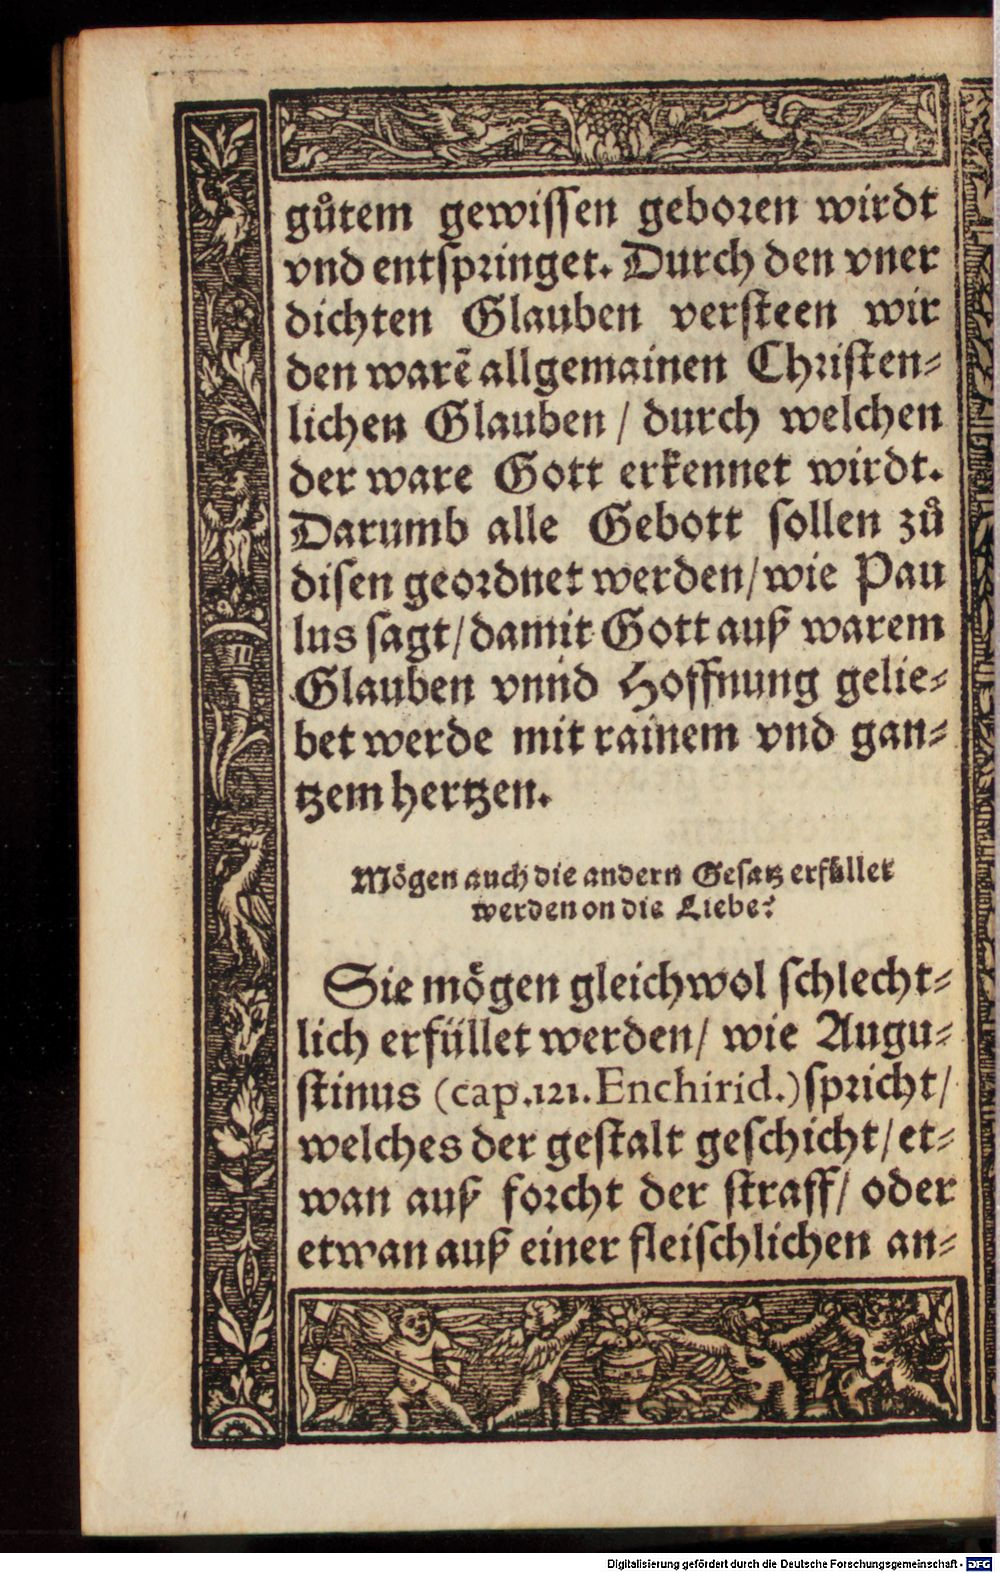 gůtem gewissen geboren wirdt
vnd entspringet. Durch den vner
dichten Glauben versteen wir
den warē allgemainen Christen-
lichen Glauben / durch welchen
der ware Gott erkennet wirdt.
Darumb alle Gebott sollen zů
disen geordnet werden / wie Pau
lus sagt / damit Gott auß warem
Glauben vnnd Hoffnung gelie-
bet werde mit rainem vnd gan-
tzem hertzen.
Mögen auch die andern Gesatz erfüllet
werden on die Liebe?
Sie mögen gleichwol schlecht-
lich erfüllet werden / wie Augu-
stinus (cap.121.Enchirid.) spricht /
welches der gestalt geschicht / et-
wan auß forcht der straff / oder
etwan auß einer fleischlichen an-
Digitalisierung gefördert durch die Deutsche Forschungsgemeinschaft - DFG